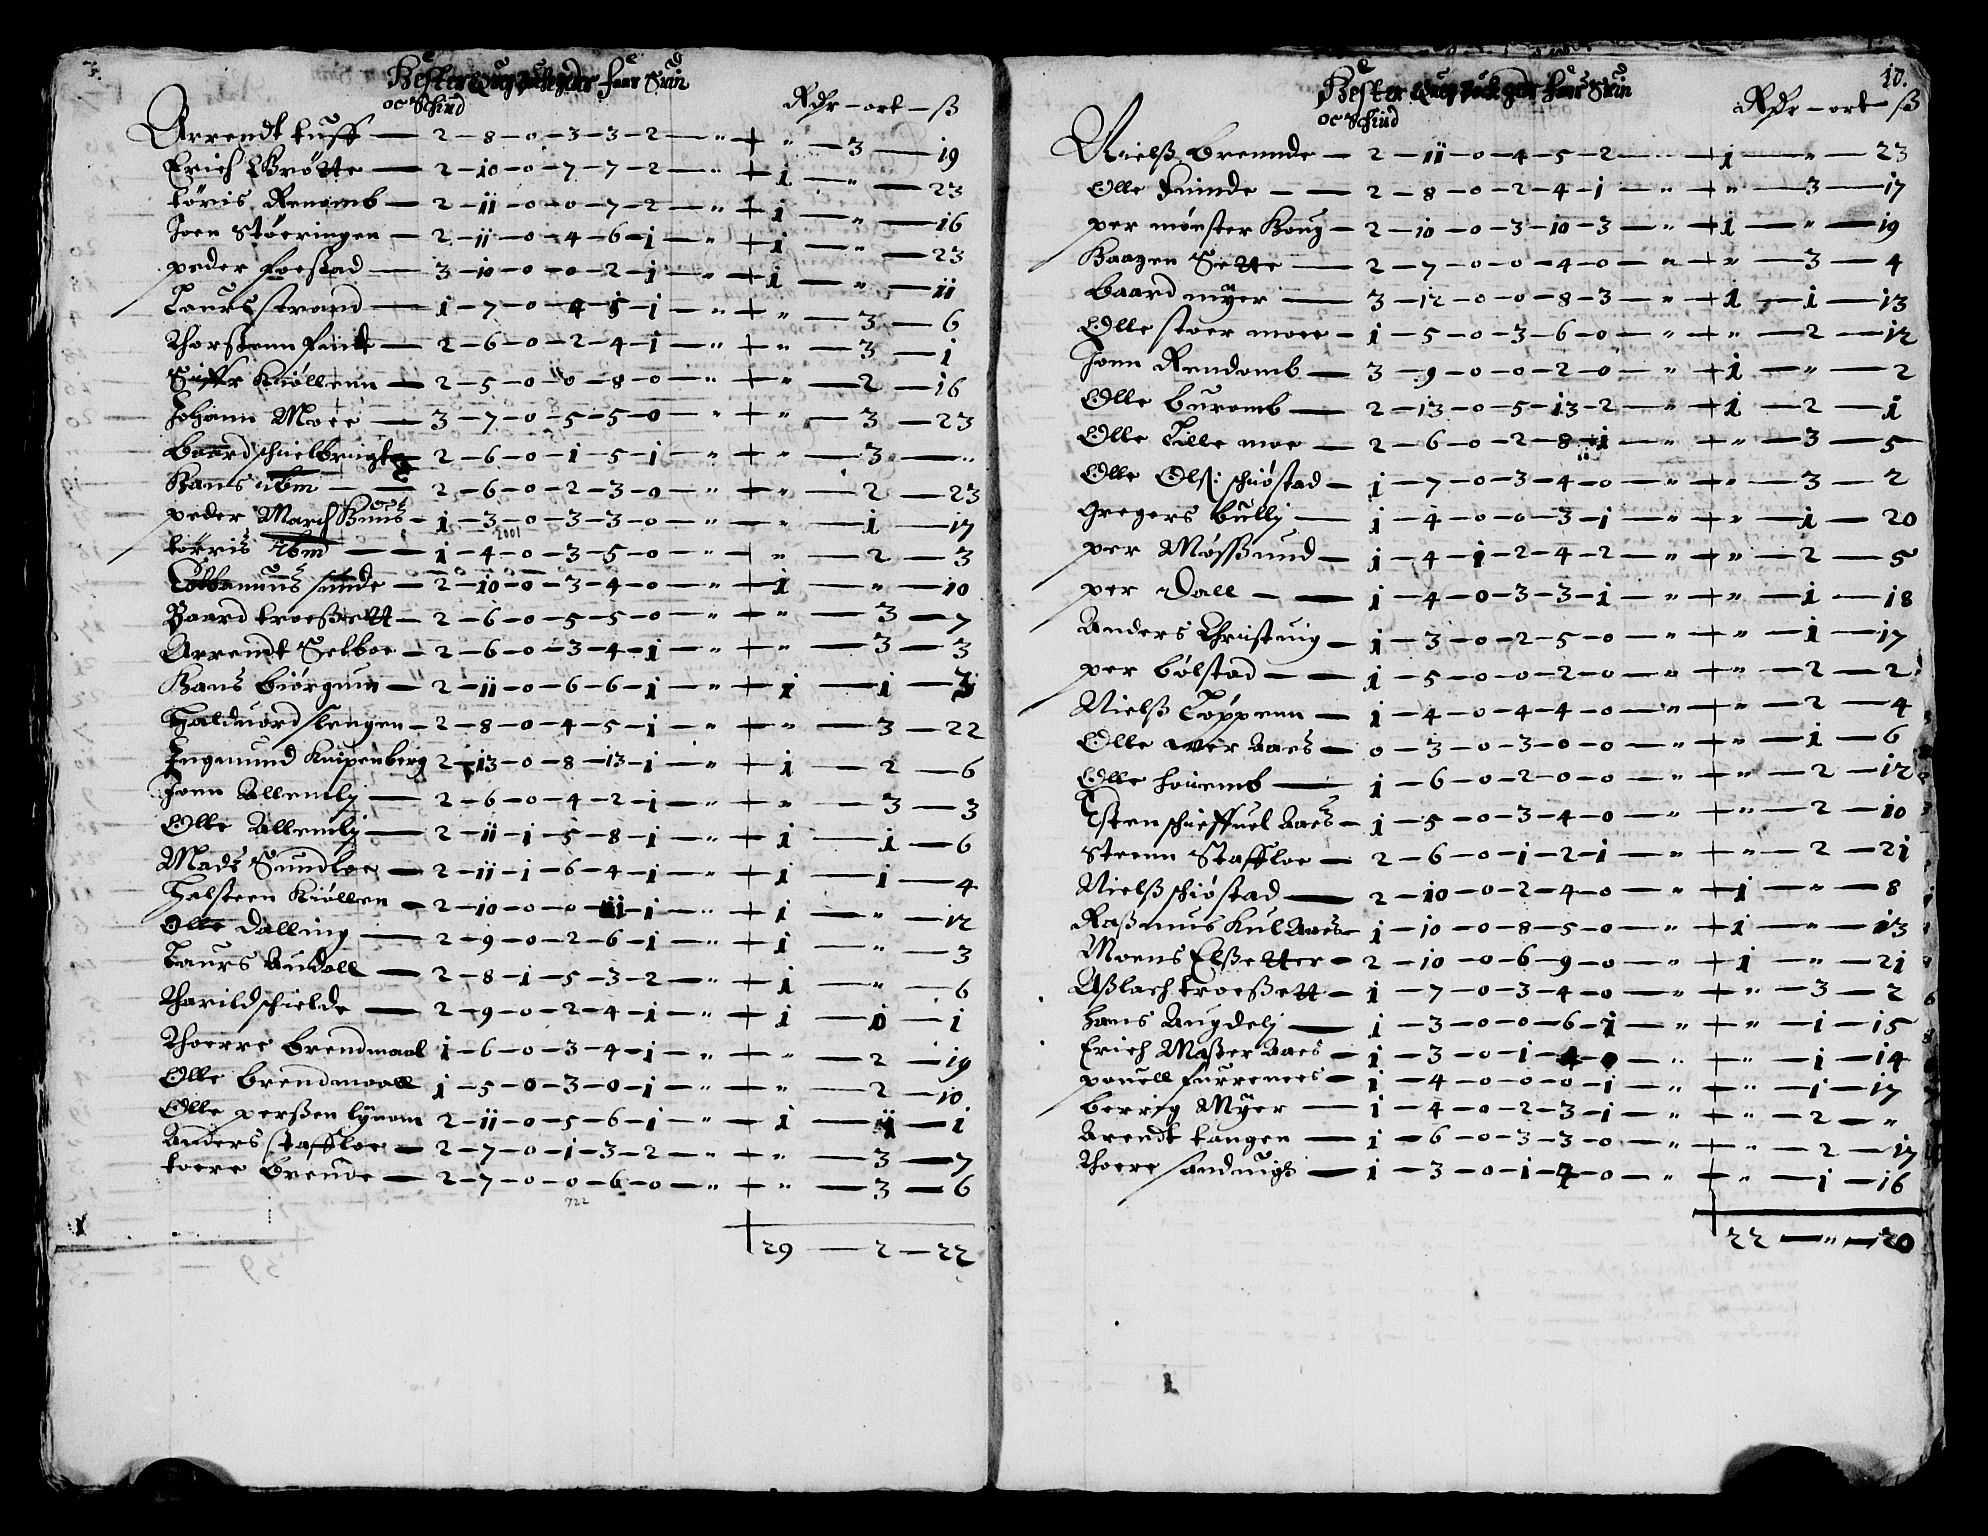 Hester Queg buch geder faar Suin
oc Schiud
Rdr — ort — ß
Arrendt tuff — 2 – 8 – 0 – 3 – 3 – 2 — „ + „ — 3 — 19
Erich Grötte — 2 – 10 – 0 – 7 – 7 – 2 — „ + 1 — „ — 23
törris Renomb — 2 – 11 – 0 – 0 – 7 – 2 — „ + 1 — „ — 16
Joen Störingen — 2 – 11 – 0 – 4 – 6 – 1 — „ + 1 — „ — 23
peder foestad — 3 – 10 – 0 – 0 – 2 – 1 — „ + 1 — „ — 11
Laurs strand — 1 – 7 – 0 – 4 – 5 – 1 — „ + „ — 3 — 6
Thorstenn — 2 – 6 – 0 – 2 – 4 – 1 — „ + „ — 3 — 1
Kiöllenn — 2 – 5 – 0 – 0 – 8 – 0 — „ + „ — 2 — 16
Johann Moee — 3 – 7 – 0 – 5 – 5 – 0 — „ + „ — 3 — 23
baard — 2 – 6 – 0 – 1 – 5 – 1 — „ + „ — 3 — „
Hans ibm — 2 – 6 – 0 – 2 – 3 – 0 — „ + „ — 2 — 23
peder March — 1 – 3 – 0 – 3 – 3 – 0 — „ + „ — 1 — 17
törris ibm — 1 – 4 – 0 – 3 – 5 – 0 — „ + „ — 2 — 3
sunde — 2 – 10 – 0 – 3 – 4 – 0 — „ + 1 — „ — 10
Baard troeßett — 2 – 6 – 0 – 5 – 5 – 0 — „ + „ — 3 — 7
Arrendt Selboe — 2 – 6 – 0 – 3 – 4 – 1 — „ + „ — 3 — 3
Hans biörgum — 2 – 11 – 0 – 6 – 6 – 1 — „ + 1 — 1 —
Halduord slengen — 2 – 8 – 0 – 4 – 5 – 1 — „ + „ — 3 — 22
Ingmund Knipenberg 2 – 13 – 0 – 8 – 13 – 1 — „ + 1 — 2 — 6
Joen Allemly — 2 – 6 – 0 – 4 – 2 – 1 — „ + „ — 3 — 3
Olle Allemly — 2 – 11 – 1 – 5 – 8 – 1 — „ + 1 — 1 — 6
Mads Sundloe — 2 – 11 – 1 – 6 – 4 – 1 — „ + 1 — 1 — 4
Halsteen Kiöllen — 2 – 10 – 0 – 0 – 11 – 1 — „ + 1 — „ — 12
Olle dalling — 2 – 9 – 0 – 2 – 6 – 1 — „ + 1 — „ — 3
Laurs Audall — 2 – 8 – 1 – 5 – 3 – 2 — „ + 1 — „ — 6
Tharild schielde — 2 – 9 – 0 – 2 – 4 – 1 — „ + 1 — 0 — 1
Thoerre brendmaal 1 – 6 – 0 – 3 – 4 – 1 — „ + „ — 2 — 19
Olle brendmaall 1 – 5 – 0 – 3 – 0 – 1 — „ + „ — 2 — 10
Olle perßen lyuom 2 – 11 – 0 – 5 – 6 – 1 — „ + 1 — 1 — 1
Anders staffloe — 2 – 7 – 0 – 1 – 3 – 2 — „ + „ — 3 — 7
toere brende — 2 – 7 – 0 – 0 – 6 – 0 — „ + „ — 3 — 6
722
29 — 2 — 22
10.
Hester Queg buch geder faar Suin
oc Schiud
Rdr — ort — ß
Nielß brennde — 2 – 11 – 0 – 4 – 5 – 2 — „ + 1 — „ — 23
Olle — 2 – 8 – 0 – 2 – 4 – 1 — „ + „ — 3 — 17
per mönster Haug — 2 – 10 – 0 – 3 – 10 – 3 — „ + 1 — „ — 19
Haagen Sette — 2 – 7 – 0 – 0 – 4 – 0 — „ + „ — 3 — 4
baard myer — 3 – 12 – 0 – 0 – 8 – 3 — „ + 1 — 1 — 13
Olle stoer moee — 1 – 5 – 0 – 3 – 6 – 0 — „ + „ — 2 — 12
Jonn Rendomb — 3 – 9 – 0 – 0 – 2 – 0 — „ + 1 — „ — 2
Olle buromb — 2 – 13 – 0 – 5 – 13 – 2 — „ + 1 — 2 — 1
Olle Lille moe — 2 – 6 – 0 – 2 – 8 – 1 — „ + „ — 3 — 5
Olle Olß: schiöstad — 1 – 7 – 0 – 3 – 4 – 0 — „ + „ — 3 — 2
Gregers bully — 1 – 4 – 0 – 0 – 3 – 1 — „ + „ — 1 — 20
per Mößsund — 1 – 4 – 1 – 2 – 4 – 2 — „ + „ — 2 — 5
per Dall — 1 – 4 – 0 – 3 – 3 – 1 — „ + „ — 1 — 18
Anders Christuig — 1 – 3 – 0 – 2 – 5 – 0 — „ + „ — 1 — 17
per bölstad — 1 – 5 – 0 – 0 – 2 – 0 — „ + „ — 2 — 2
Nielß Töppenn — 1 – 4 – 0 – 4 – 4 – 0 — „ + „ — 2 — 4
Olle over Aaes — 0 – 3 – 0 – 3 – 0 – 0 — „ + „ — 1 — 6
Olle houemb — 1 – 6 – 0 – 2 – 0 – 0 — „ + „ — 2 — 12
Esten schieffuel Aaes — 1 – 5 – 0 – 3 – 4 – 0 — „ + „ — 2 — 10
Steenn Staffloe — 2 – 6 – 0 – 1 – 2 – 1 — „ + „ — 2 — 21
Nielß schiöstad — 2 – 10 – 0 – 2 – 4 – 0 — „ + 1 — „ — 8
Raßmus Kul Aaes — 1 – 10 – 0 – 8 – 5 – 0 — „ + 1 — „ — 13
Moens Elßetter — 2 – 10 – 0 – 6 – 9 – 0 — „ + 1 — „ — 21
Aßlach troeßett — 1 – 7 – 0 – 3 – 4 – 0 — „ + „ — 3 — 2
Hans Augdely — 1 – 3 – 0 – 0 – 6 – 1 — „ + „ — 1 — 15
Erich Maßer Aaes — 1 – 3 – 0 – 1 – 4 – 0 — „ + „ — 1 — 14
pouell furrenees — 1 – 4 – 0 – 0 – 0 – 1 — „ + „ — 1 — 17
berrig Myer — 1 – 4 – 0 – 2 – 3 – 1 — „ + „ — 2 — „
Arendt tangen — 1 – 6 – 0 – 3 – 3 – 0 — „ + „ — 2 — 17
Thoere sanduigs — 1 – 3 – 0 – 1 – 7 – 0 — „ + „ — 1 — 16
22 — „ — 20